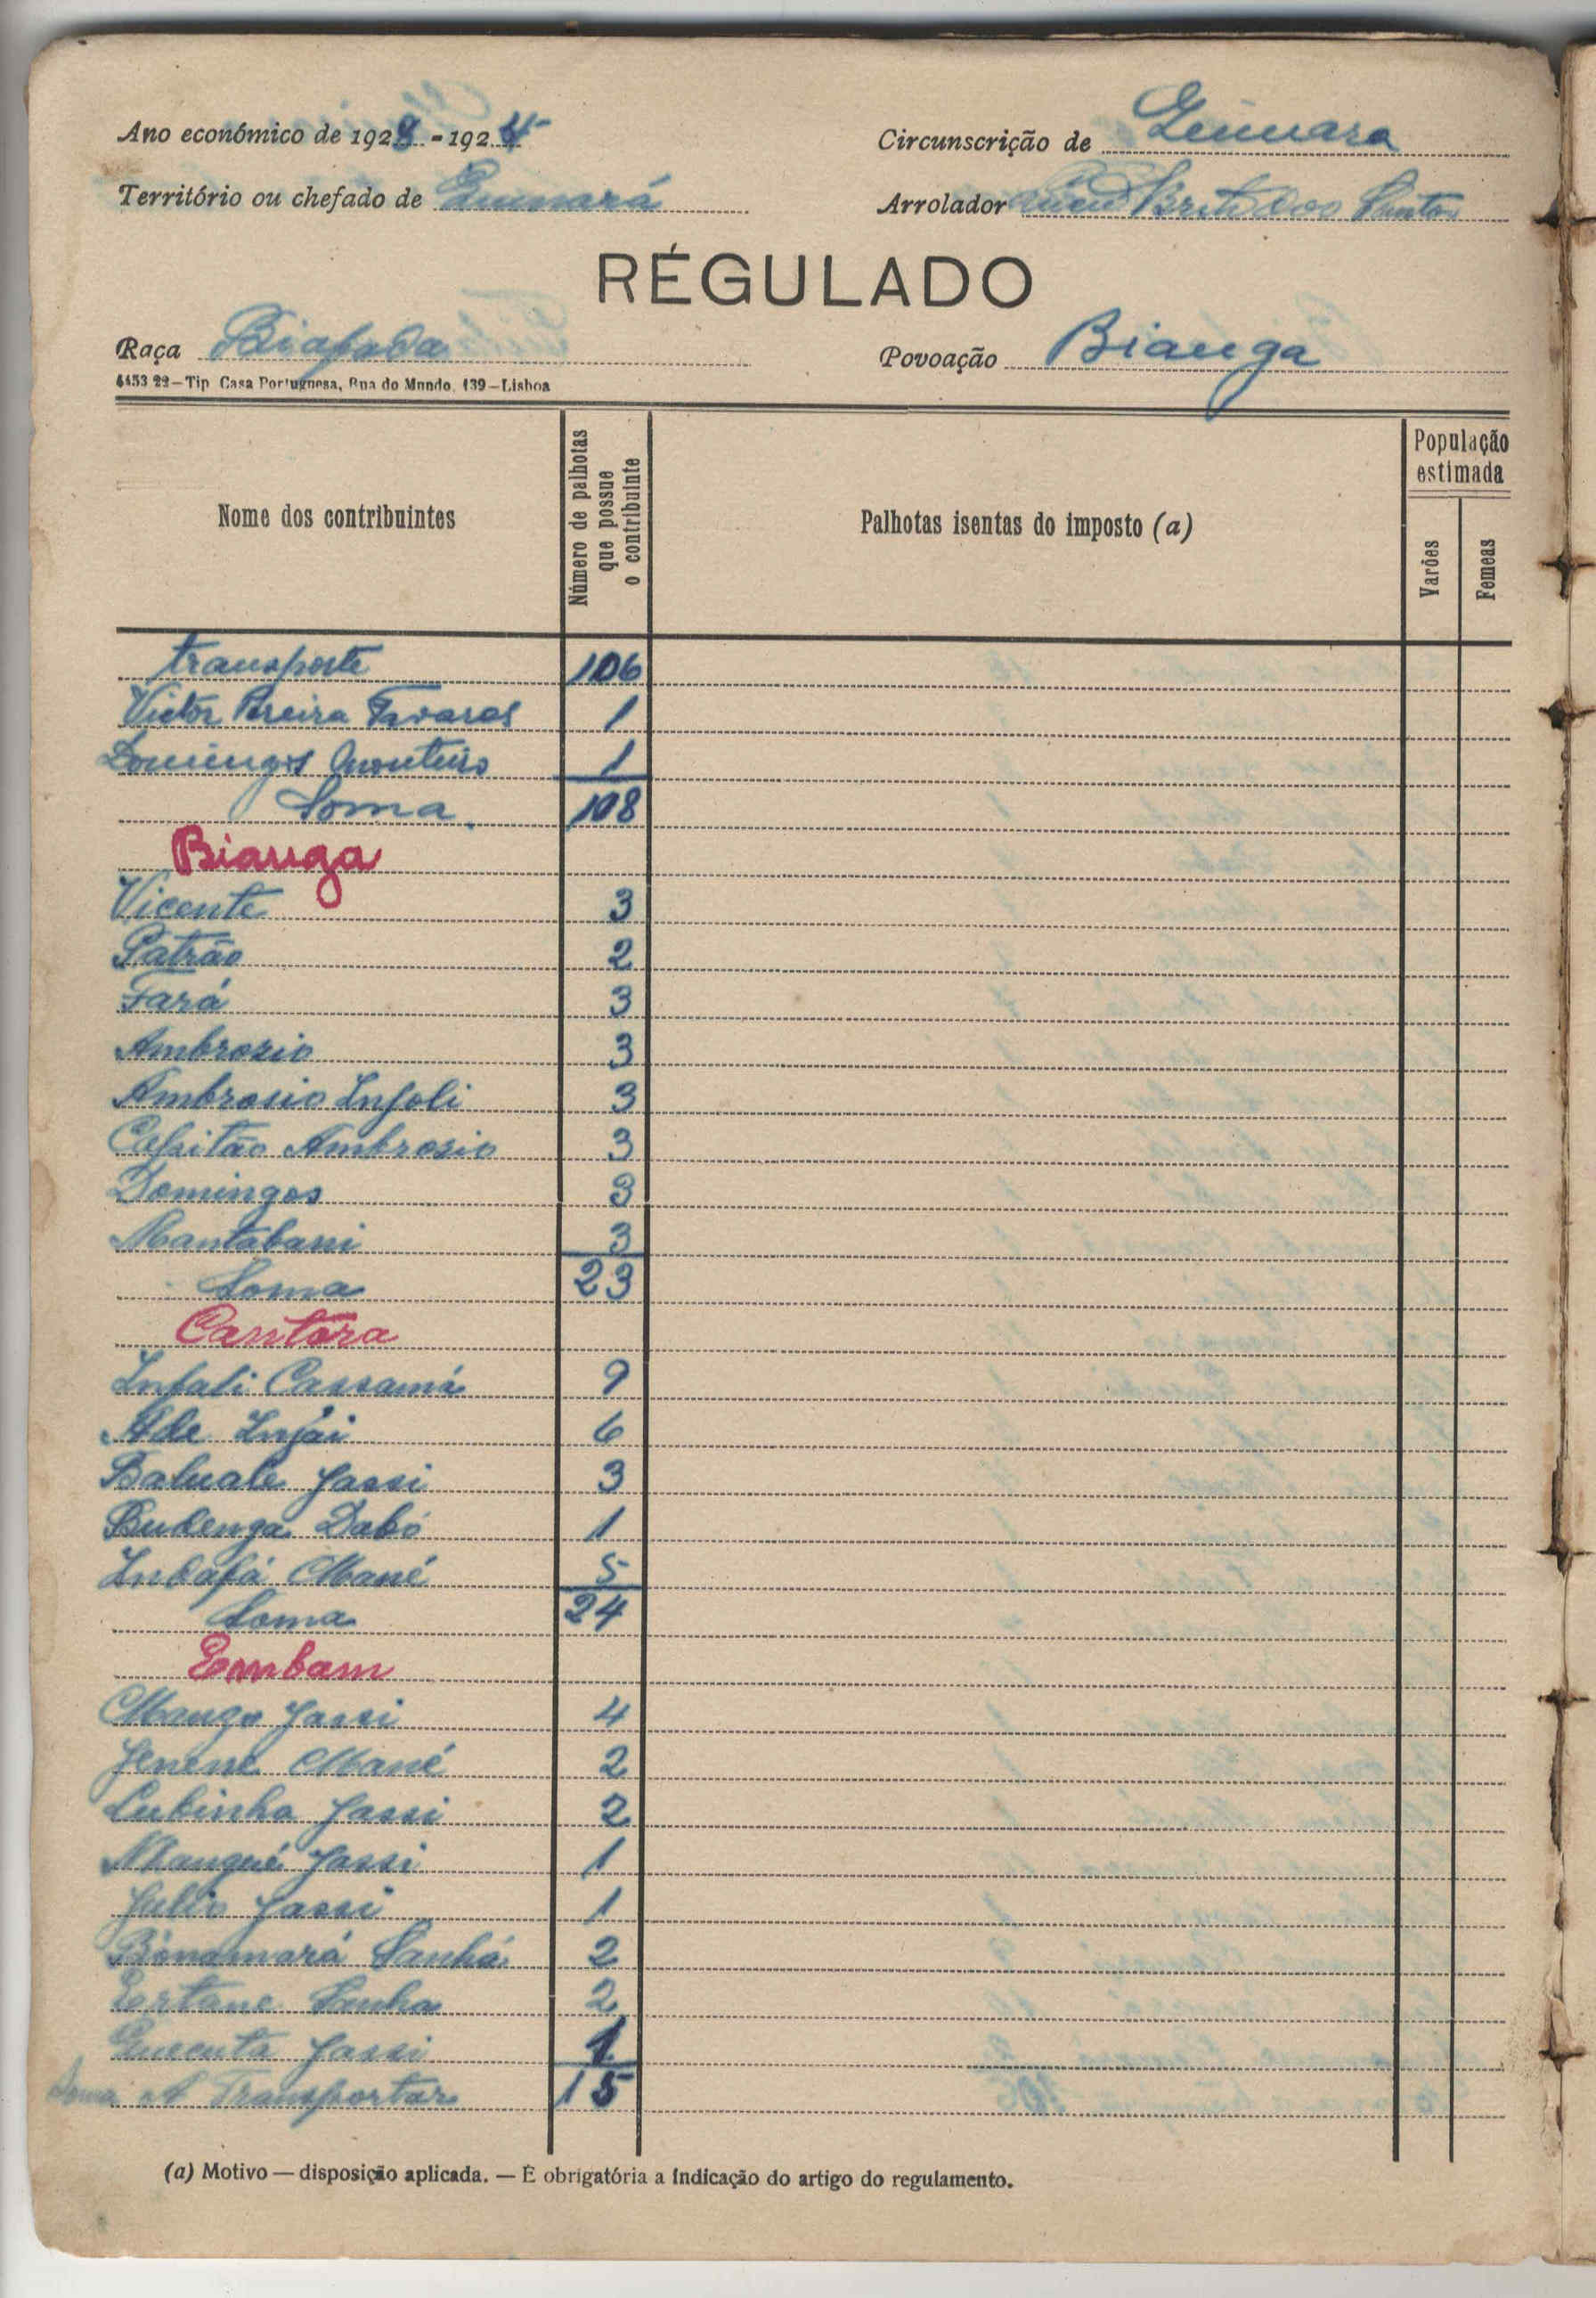 Ano económico de 1923-1924
Circunscrição de Quinara
Território ou chefado de Quinará
Arrolador Brito dos Santos
RÉGULADO
Raça Biafada
Povoação Bianga
4453 22—Tip Casa Portuguesa, Rua do Mundo, 139—Lisboa
Nome dos contribuintes
Número de palhotas que possue o contribuinte
Palhotas isentas do imposto (a)
População estimada
Varões
Femeas
transporte 106
Victor Pereira Tavares 1
Domingos Monteiro 1
Soma 108
Bianga
Vicente 3
Patrão 2
Fará 3
Ambrozio 3
Ambrosio Infoli 3
Capitão Ambrosio 3
Domingos 3
Mantabani 3
Soma 23
Cantora
Infali Cassamá 9
Ade Injai 6
Baluale Jassi 3
Budenga Dabó 1
Indafá Mané 5
Soma 24
Embam
Mango Jassi 4
Jenene Mané 2
Lubinha Jassi 2
Mangué Jassi 1
Julio Jassi 1
Bionamará Sanhá 2
Sanha 2
Quecuta Jassi 1
Soma A Transportar 15
(a) Motivo — disposição aplicada. — É obrigatória a indicação do artigo do regulamento.